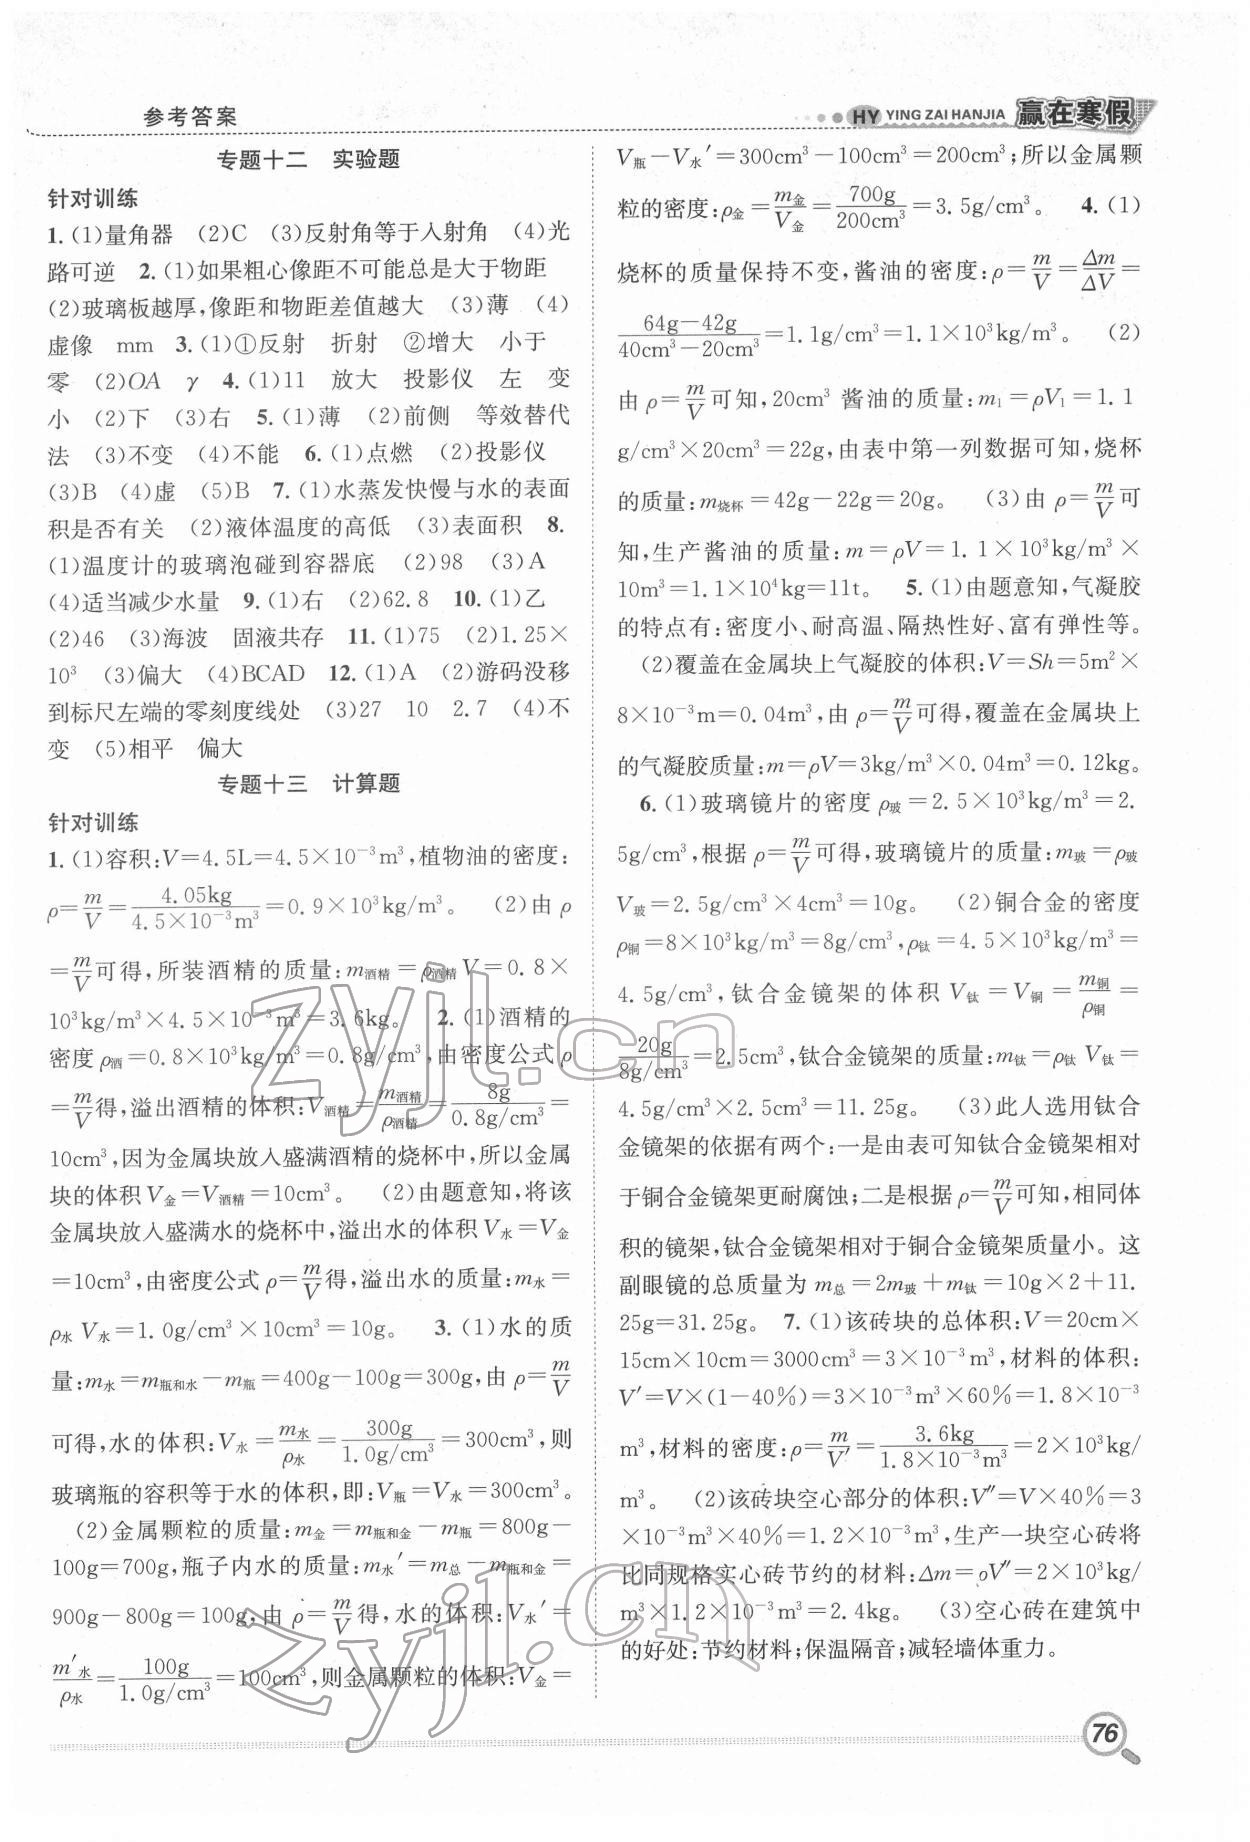 参考答案
HY YING ZAI HANJIA 赢在寒假
专题十二 实验题
针对训练
1. (1)量角器 (2)C (3)反射角等于入射角 (4)光
路可逆 2. (1)如果粗心像距不可能总是大于物距
(2)玻璃板越厚,像距和物距差值越大 (3)薄 (4)
虚像 mm 3. (1)①反射 折射 ②增大 小于
零 (2)OA γ 4. (1)11 放大 投影仪 左 变
小 (2)下 (3)右 5. (1)薄 (2)前侧 等效替代
法 (3)不变 (4)不能 6. (1)点燃 (2)投影仪
(3)B (4)虚 (5)B 7. (1)水蒸发快慢与水的表面
积是否有关 (2)液体温度的高低 (3)表面积 8.
(1)温度计的玻璃泡碰到容器底 (2)98 (3)A
(4)适当减少水量 9. (1)右 (2)62.8 10. (1)乙
(2)46 (3)海波 固液共存 11. (1)75 (2)1.25×
10³ (3)偏大 (4)BCAD 12. (1)A (2)游码没移
到标尺左端的零刻度线处 (3)27 10 2.7 (4)不
变 (5)相平 偏大
专题十三 计算题
针对训练
1. (1)容积:V=4.5L=4.5×10⁻³m³,植物油的密度:
ρ=m/V=4.05kg/4.5×10⁻³m³=0.9×10³kg/m³。 (2)由ρ
=m/V可得,所装酒精的质量:m酒精=ρ酒精V=0.8×
10³kg/m³×4.5×10⁻³m³=3.6kg。 2. (1)酒精的
密度ρ酒=0.8×10³kg/m³=0.8g/cm³,由密度公式ρ
=m/V得,溢出酒精的体积:V酒精=m酒精/ρ酒精=8g/0.8g/cm³=
10cm³,因为金属块放入盛满酒精的烧杯中,所以金属
块的体积V金=V酒精=10cm³。 (2)由题意知,将该
金属块放入盛满水的烧杯中,溢出水的体积V水=V金
=10cm³,由密度公式ρ=m/V得,溢出水的质量:m水=
ρ水V水=1.0g/cm³×10cm³=10g。 3. (1)水的质
量:m水=m瓶和水-m瓶=400g-100g=300g,由ρ=m/V
可得,水的体积:V水=m水/ρ水=300g/1.0g/cm³=300cm³,则
玻璃瓶的容积等于水的体积,即:V瓶=V水=300cm³。
(2)金属颗粒的质量:m金=m瓶和金-m瓶=800g-
100g=700g,瓶子内水的质量:m水′=m总-m瓶和金=
900g-800g=100g,由ρ=m/V得,水的体积:V水′=
m′水/ρ水=100g/1.0g/cm³=100cm³,则金属颗粒的体积:V金=
V瓶-V水′=300cm³-100cm³=200cm³;所以金属颗
粒的密度:ρ金=m金/V金=700g/200cm³=3.5g/cm³。 4. (1)
烧杯的质量保持不变,酱油的密度:ρ=m/V=Δm/ΔV=
64g-42g/40cm³-20cm³=1.1g/cm³=1.1×10³kg/m³。 (2)
由ρ=m/V可知,20cm³酱油的质量:m₁=ρV₁=1.1
g/cm³×20cm³=22g,由表中第一列数据可知,烧杯
的质量:m烧杯=42g-22g=20g。 (3)由ρ=m/V可
知,生产酱油的质量:m=ρV=1.1×10³kg/m³×
10m³=1.1×10⁴kg=11t。 5. (1)由题意知,气凝胶
的特点有:密度小、耐高温、隔热性好、富有弹性等。
(2)覆盖在金属块上气凝胶的体积:V=Sh=5m²×
8×10⁻³m=0.04m³,由ρ=m/V可得,覆盖在金属块上
的气凝胶质量:m=ρV=3kg/m³×0.04m³=0.12kg。
6. (1)玻璃镜片的密度ρ玻=2.5×10³kg/m³=2.
5g/cm³,根据ρ=m/V可得,玻璃镜片的质量:m玻=ρ玻
V玻=2.5g/cm³×4cm³=10g。 (2)铜合金的密度
ρ铜=8×10³kg/m³=8g/cm³,ρ钛=4.5×10³kg/m³=
4.5g/cm³,钛合金镜架的体积V钛=V铜=m铜/ρ铜=
20g/8g/cm³=2.5cm³,钛合金镜架的质量:m钛=ρ钛V钛=
4.5g/cm³×2.5cm³=11.25g。 (3)此人选用钛合
金镜架的依据有两个:一是由表可知钛合金镜架相对
于铜合金镜架更耐腐蚀;二是根据ρ=m/V可知,相同体
积的镜架,钛合金镜架相对于铜合金镜架质量小。这
副眼镜的总质量为m总=2m玻+m钛=10g×2+11.
25g=31.25g。 7. (1)该砖块的总体积:V=20cm×
15cm×10cm=3000cm³=3×10⁻³m³,材料的体积:
V′=V×(1-40%)=3×10⁻³m³×60%=1.8×10⁻³
m³,材料的密度:ρ=m/V′=3.6kg/1.8×10⁻³m³=2×10³kg/
m³。 (2)该砖块空心部分的体积:V″=V×40%=3
×10⁻³m³×40%=1.2×10⁻³m³,生产一块空心砖将
比同规格实心砖节约的材料:Δm=ρV″=2×10³kg/
m³×1.2×10⁻³m³=2.4kg。 (3)空心砖在建筑中
的好处:节约材料;保温隔音;减轻墙体重力。
zyjl.cn
zyjl.cn
76